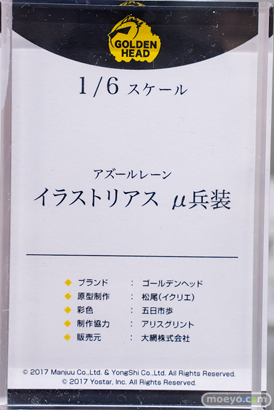 GOLDEN
HEAD
1/6 スケール
アズールレーン
イラストリアス μ兵装
◆ ブランド : ゴールデンヘッド
◆ 原型制作 : 松尾(イクリエ)
◆ 彩色 : 五日市歩
◆ 制作協力 : アリスグリント
◆ 販売元 : 大網株式会社
© 2017 Manjuu Co.,Ltd. & YongShi Co.,Ltd. All Rights Reserved.
© 2017 Yostar, Inc. All Rights Reserved.
moeyo.com